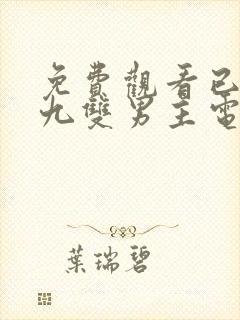 免費觀看已
九雙男主電
葉瑞碧